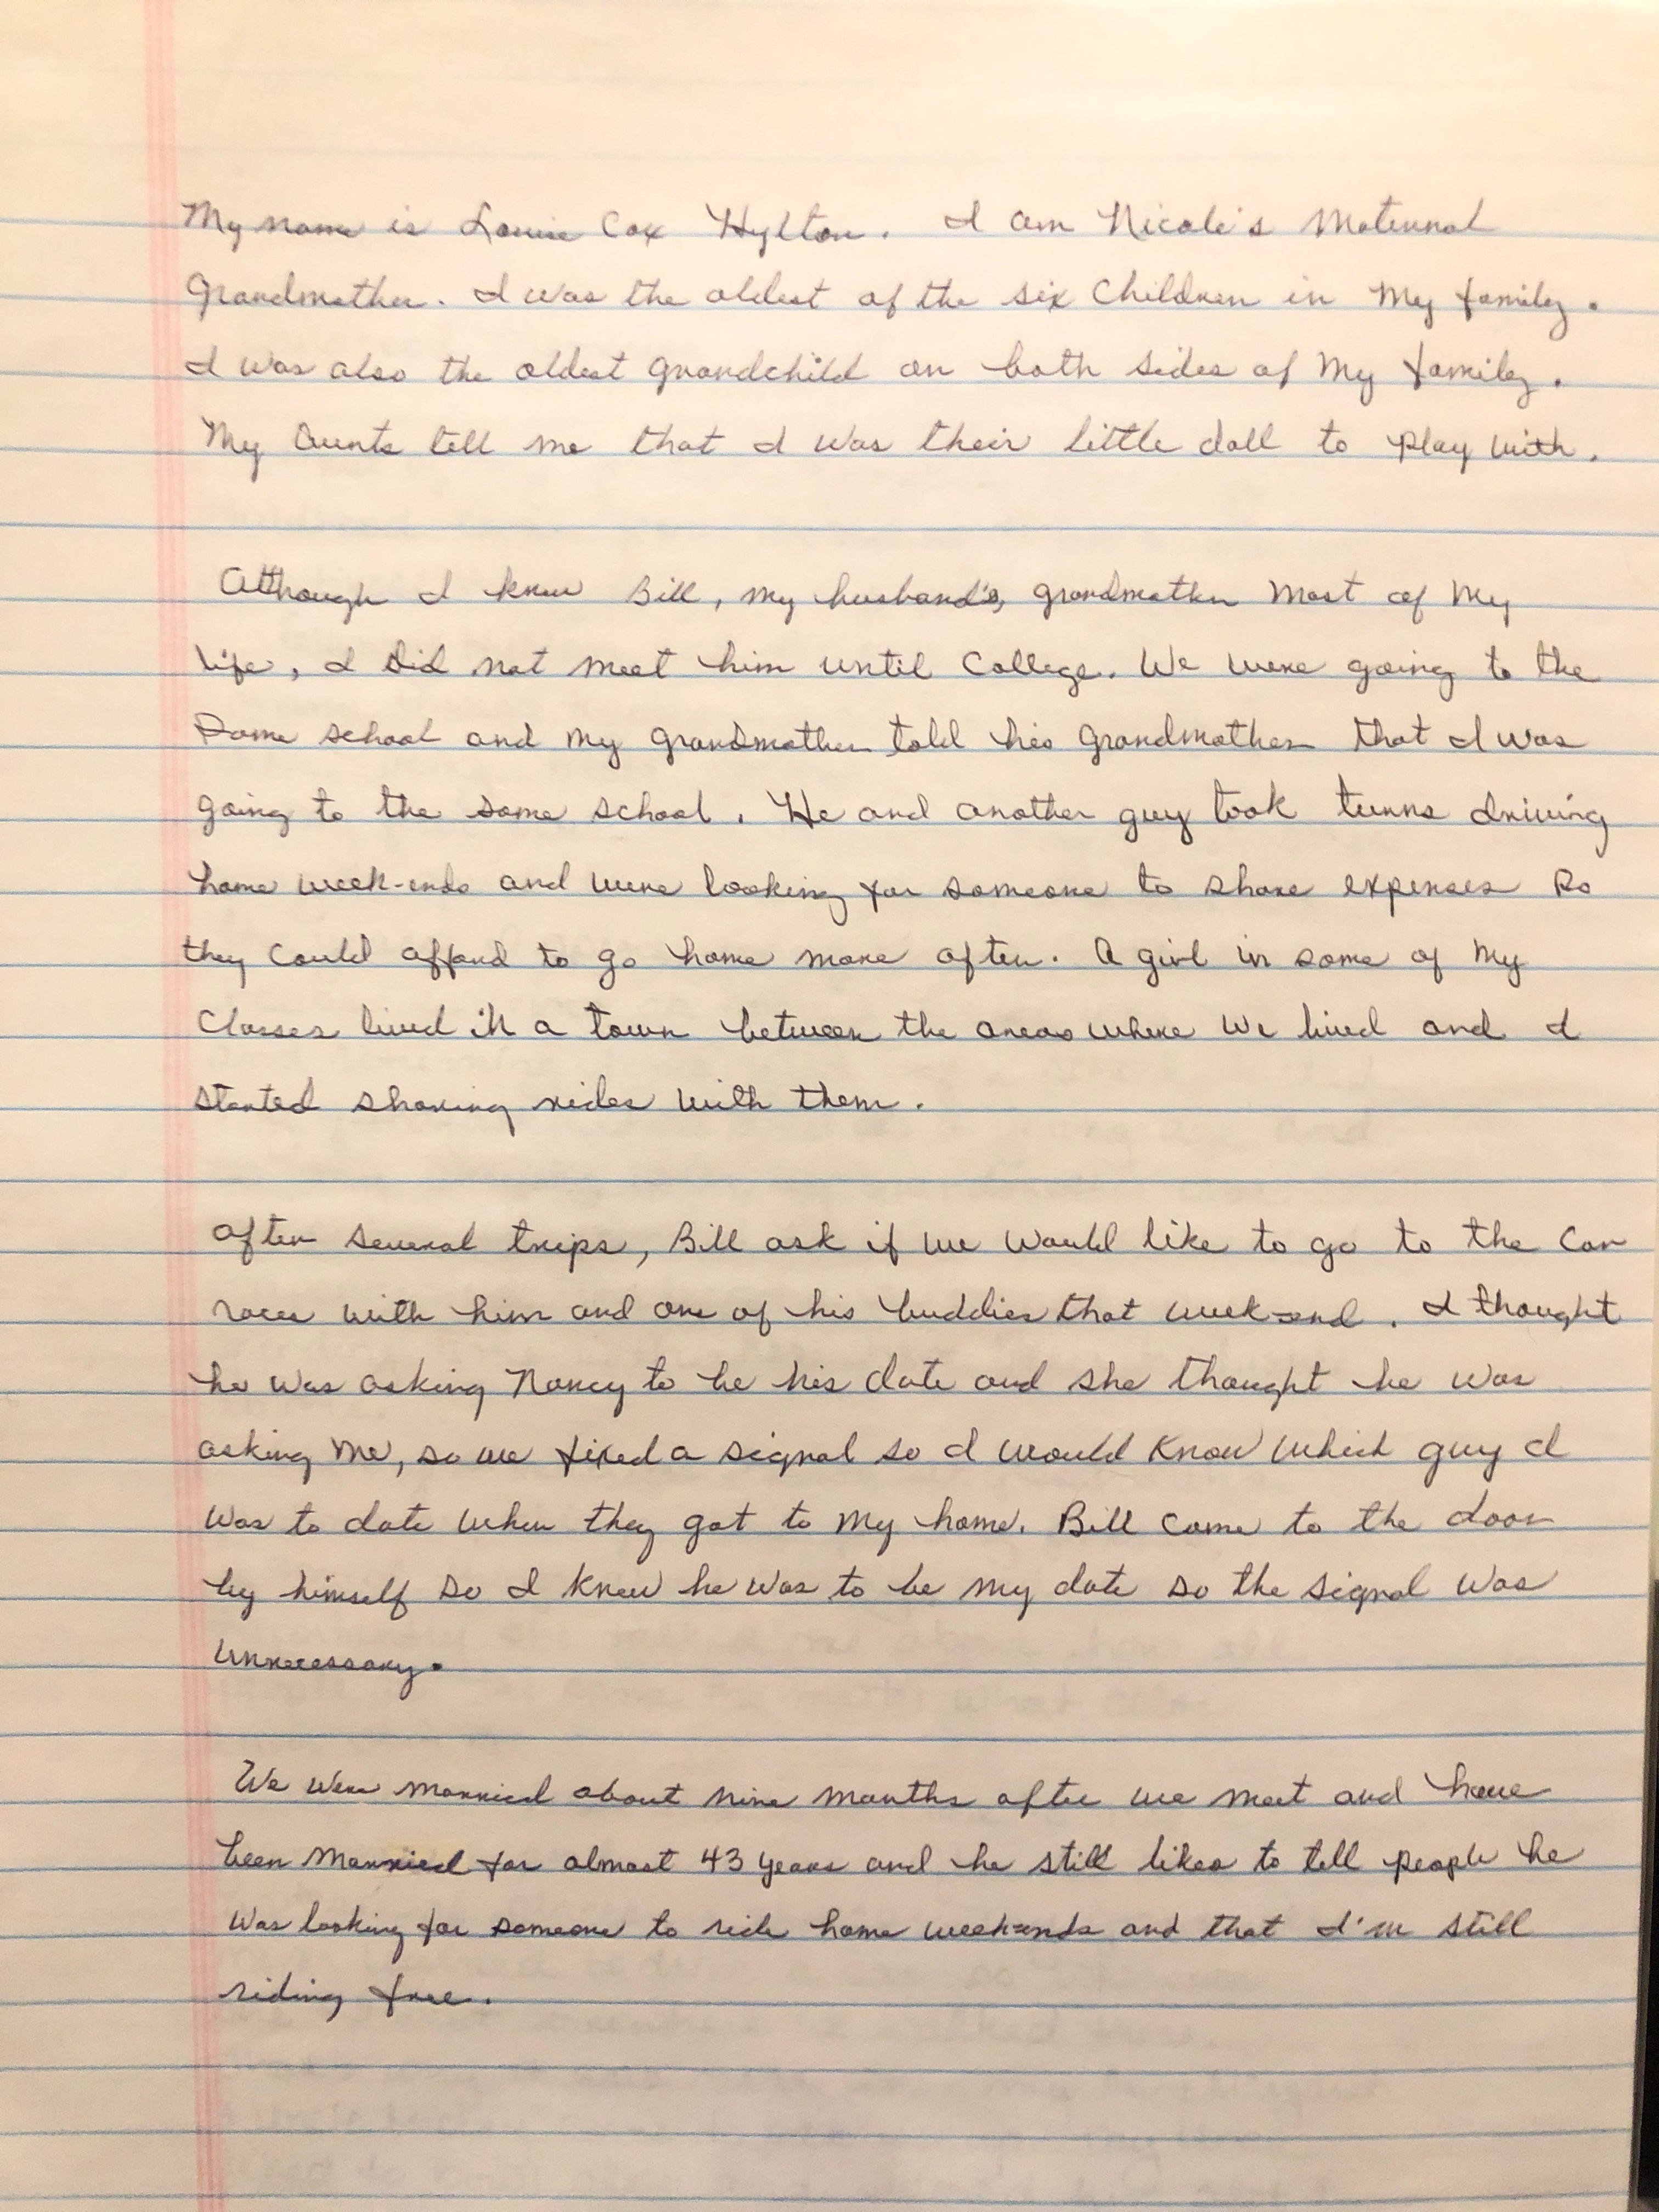 My name is Louise Cox Hylton. I am Nicole's Maternal
Grandmother. I was the oldest of the six Children in My family.
I was also the oldest grandchild on both sides of My family.
My Aunts tell me that I was their little doll to play with.
Although I knew Bill, my husband's, grandmother most of My
life, I did not meet him until College. We were going to the
Same school and my grandmother told his grandmother that I was
going to the same school. He and another guy took turns driving
home week-ends and were looking for someone to share expenses so
they could afford to go home more often. A girl in some of My
Classes lived in a town between the areas where we lived and I
started sharing rides with them.
After several trips, Bill ask if we would like to go to the Car
races with him and one of his buddies that week-end. I thought
he was asking Nancy to be his date and she thought he was
asking me, so we fixed a signal so I would know which guy I
was to date when they got to my home. Bill came to the door
by himself so I knew he was to be my date so the signal was
unnecessary.
We were married about nine months after we meet and have
been married for almost 43 years and he still likes to tell people he
was looking for someone to ride home week-ends and that I'm still
riding free.